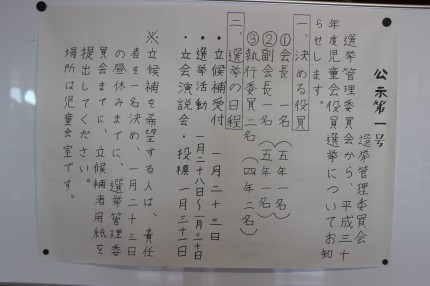 公示第一号
選挙管理委員会
選挙管理委員会から、平成三十
年度児童会役員選挙についてお知
らせします。
一、決める役員
①会長 一名(五年一名)
②副会長 一名(五年一名)
③執行委員二名(四年二名)
二、選挙の日程
・立候補受付 一月二十三日
・選挙活動 一月二十八日〜一月三十日
・立会演説会・投票 一月三十一日
※立候補を希望する人は、責任
者を一名決め、一月二十三日
の昼休みまでに、選挙管理委
員会までに、立候補者用紙を
提出してください。
場所は児童会室です。